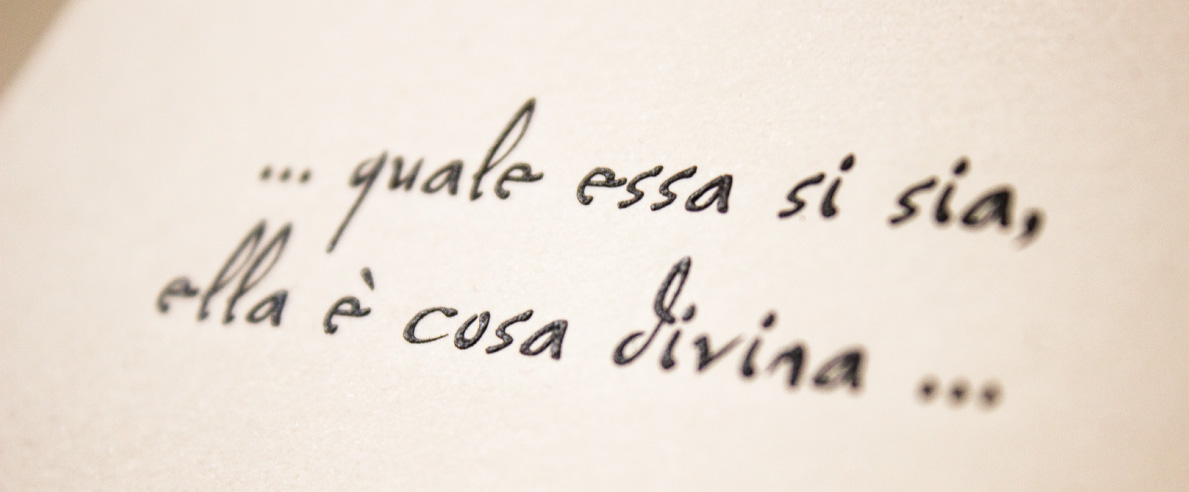 ... quale essa si sia,
ella è cosa divina ...